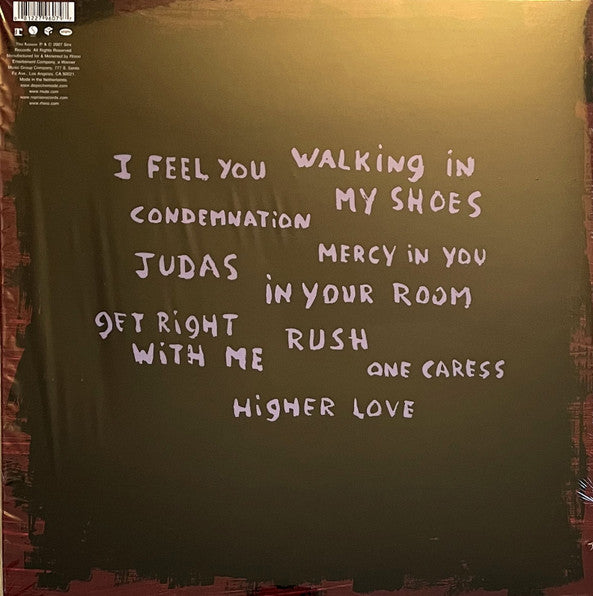 This Reissue ℗ & © 2007 Sire
Records. All Rights Reserved.
Manufactured for & Marketed by Rhino
Entertainment Company, a Warner
Music Group Company, 777 S. Santa
Fe Ave., Los Angeles, CA 90021.
Made in the Netherlands.
www.depechemode.com
www.mute.com
www.repriserecords.com
www.rhino.com
I FEEL YOU WALKING IN
MY SHOES
CONDEMNATION
MERCY IN YOU
JUDAS
IN YOUR ROOM
GET RIGHT
WITH ME
RUSH
ONE CARESS
HIGHER LOVE